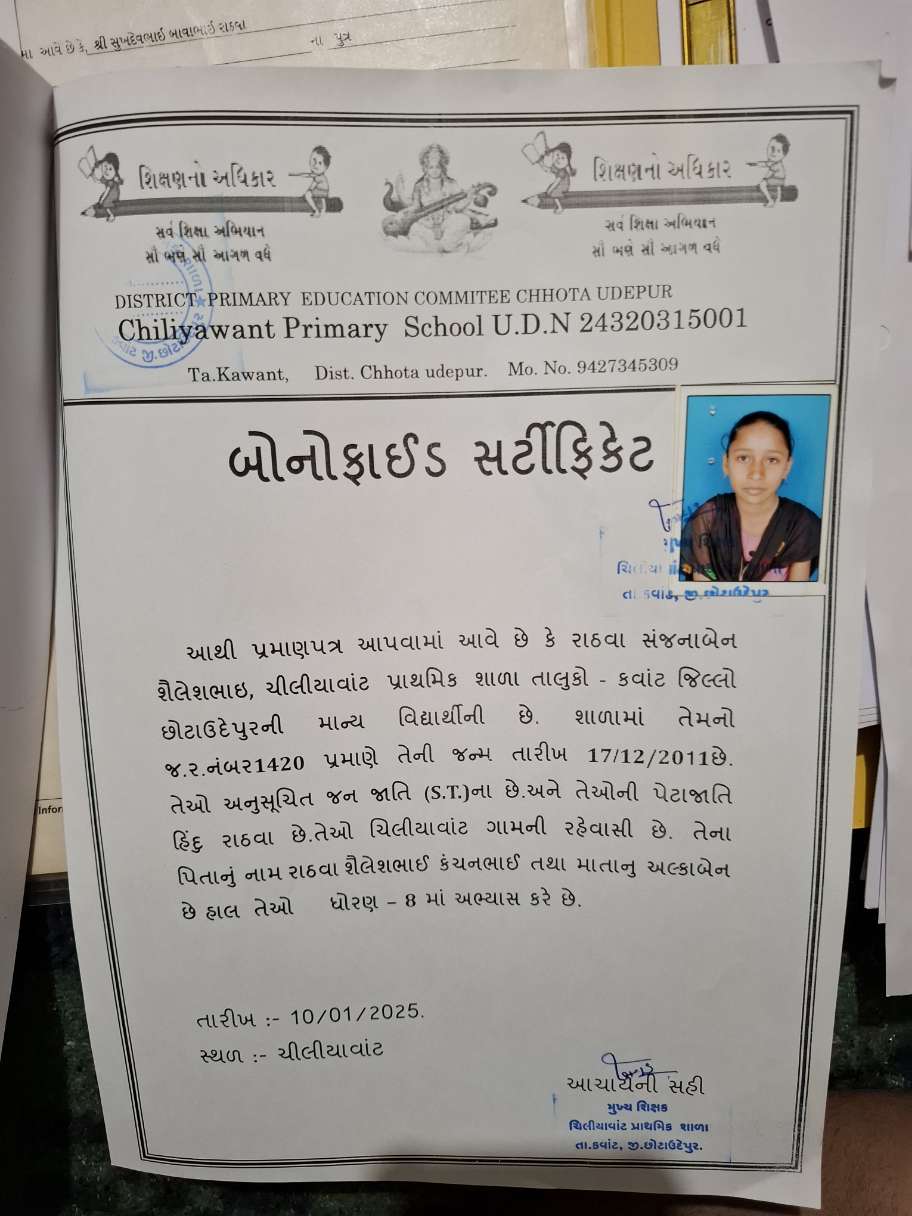 મા આવે છે કે, શ્રી સુખદેવભાઈ બાવાભાઈ રાઠવા
ના પુત્ર
શિક્ષણનો અધિકાર
સર્વ શિક્ષા અભિયાન
સૌ ભણે સૌ આગળ વધે
શિક્ષણનો અધિકાર
સર્વ શિક્ષા અભિયાન
સૌ ભણે સૌ આગળ વધે
DISTRICT PRIMARY EDUCATION COMMITEE CHHOTA UDEPUR
Chiliyawant Primary School U.D.N 24320315001
Ta.Kawant, Dist. Chhota udepur. Mo. No. 9427345309
બોનોફાઈડ સર્ટીફિકેટ
મુખ્ય શિ
ચિલીયા
તા.કવાંટ, જી.છોટાઉદેપુર
આથી પ્રમાણપત્ર આપવામાં આવે છે કે રાઠવા સંજનાબેન
શૈલેશભાઇ, ચીલીયાવાંટ પ્રાથમિક શાળા તાલુકો - કવાંટ જિલ્લો
છોટાઉદેપુરની માન્ય વિદ્યાર્થીની છે. શાળામાં તેમનો
જ.ર.નંબર1420 પ્રમાણે તેની જન્મ તારીખ 17/12/2011છે.
તેઓ અનુસૂચિત જન જાતિ (S.T.)ના છે.અને તેઓની પેટાજાતિ
હિંદુ રાઠવા છે.તેઓ ચિલીયાવાંટ ગામની રહેવાસી છે. તેના
પિતાનું નામ રાઠવા શૈલેશભાઈ કંચનભાઈ તથા માતાનુ અલ્કાબેન
છે હાલ તેઓ ધોરણ – 8 માં અભ્યાસ કરે છે.
Infor
તારીખ :- 10/01/2025.
સ્થળ :- ચીલીયાવાંટ
આચાર્યની સહી
મુખ્ય શિક્ષક
ચિલીયાવાંટ પ્રાથમિક શાળા
તા.કવાંટ, જી.છોટાઉદેપુર.